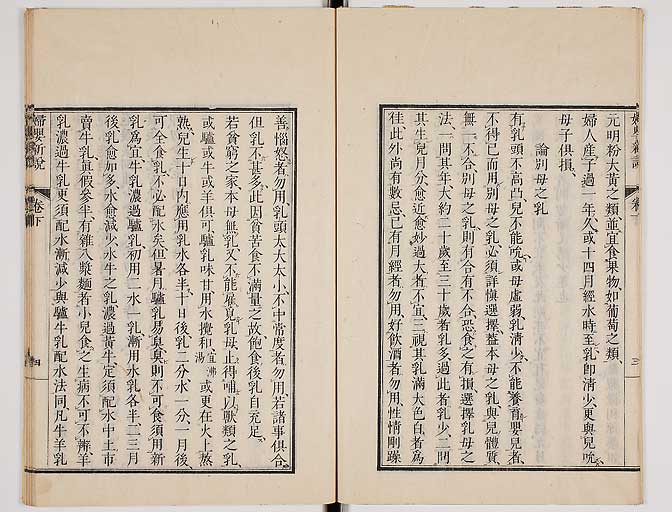 元明粉大黃之類並宜食果物如葡萄之類
婦人産子過一年久或十四月經水時至乳即淸少更與兒吮
母子俱損
論別母之乳
有乳頭不高凸兒不能吮或母虛弱乳淸少不能養育嬰兒者
不得已而用別母之乳必須詳愼選擇蓋本母之乳與兒體質
無一不合別母之乳則有合有不合恐食之有損選擇乳母之
法一問其年大約二十歲至三十歲者乳多過此者乳少二問
其生兒月分愈近愈妙過大者不宜三視其乳滿大色白者爲
佳此外尚有數忌已有月經者勿用好飲酒者勿用性情剛躁
善惱怒者勿用乳頭太大太小不中常度者勿用若諸事俱合
但乳不甚多此因貧苦食不滿量之故飽食後乳自充足
若貧窮之家本母無乳又不能雇覓乳母止得哺以獸類之乳
或驢或牛或羊俱可驢乳味甘用水攪和宜沸湯或更在火上熬
熟兒生十日內應用乳水各半十日後乳二分水一分一月後
可全食乳不必配水矣但暑月驢乳易臭臭則不可食須用新
乳爲宜牛乳濃過驢乳初用二水一乳漸用水乳各半二三月
後乳愈加多水愈減少水牛之乳濃過黃牛定須配水中土市
賣牛乳眞假參半有雜八漿麵者小兒食之生病不可不辨羊
乳濃過牛乳更須配水漸減少與驢牛乳配水法同凡牛羊乳
婦嬰新說
卷下
四
三